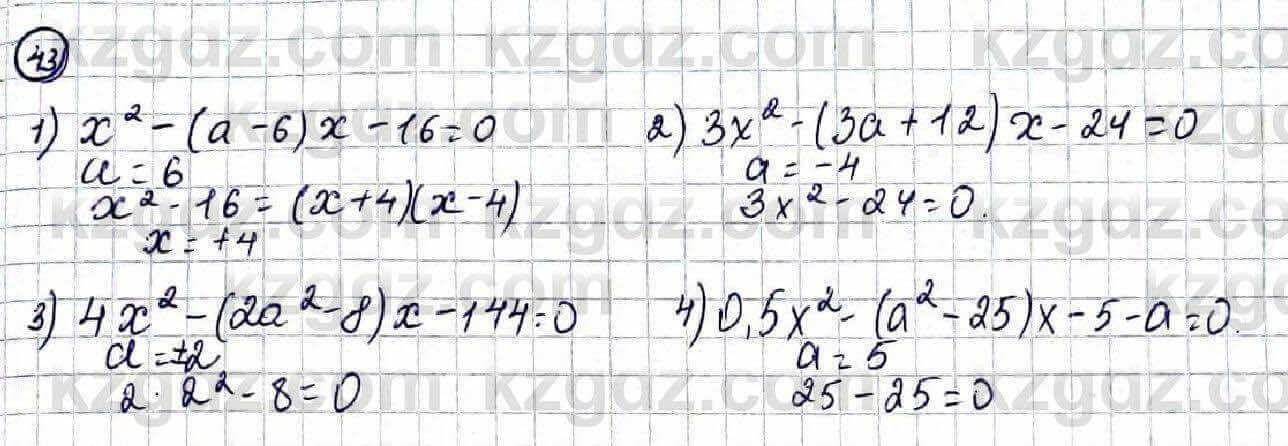 43
1) x² - (a - 6)x - 16 = 0
a = 6
x² - 16 = (x + 4)(x - 4)
x = +4
2) 3x² - (3a + 12)x - 24 = 0
a = -4
3x² - 24 = 0.
3) 4x² - (2a² - 8)x - 144 = 0
a = ±2
2 · 2² - 8 = 0
4) 0,5x² - (a² - 25)x - 5 - a = 0.
a = 5
25 - 25 = 0
kzgdz.com kzgdz.com kzgdz.com